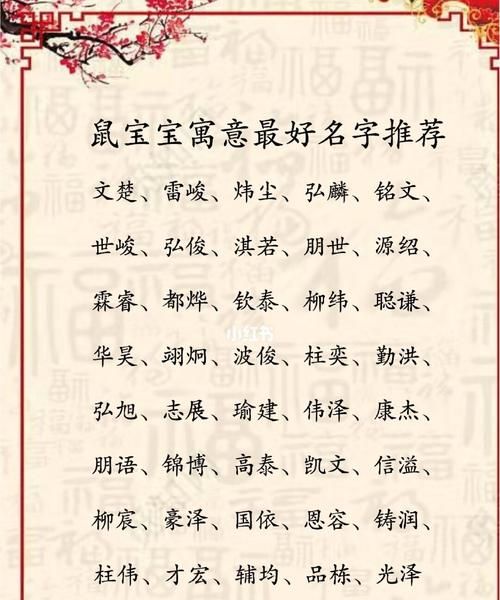 鼠宝宝寓意最好名字推荐
文楚、雷峻、炜尘、弘麟、铭文、
世峻、弘俊、淇若、朋世、源绍、
霖睿、都烨、钦泰、柳纬、聪谦、
小红书
华昊、翊炯、波俊、柱奕、勤洪、
弘旭、志展、瑜建、伟泽、康杰、
朋语、锦博、高泰、凯文、信溢、
柳宸、豪泽、国依、恩容、铸润、
柱伟、才宏、辅均、品栋、光泽